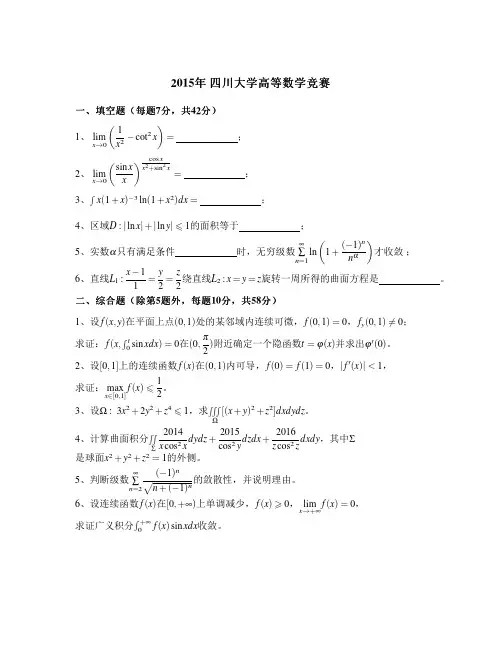 2015年 四川大学高等数学竞赛
一、填空题（每题7分，共42分）
1、$\lim_{x\to 0}\left(\frac{1}{x^2}-\cot^2 x\right)=$ ________ ；
2、$\lim_{x\to 0}\left(\frac{\sin x}{x}\right)^{\frac{\cos x}{x^2+\sin^2 x}}=$ ________ ；
3、$\int x(1+x)^{-3}\ln(1+x^2)dx=$ ________ ；
4、区域$D:|\ln x|+|\ln y|\leqslant 1$的面积等于 ________ ；
5、实数$\alpha$只有满足条件 ________ 时，无穷级数$\sum_{n=1}^{\infty}\ln\left(1+\frac{(-1)^n}{n^\alpha}\right)$才收敛；
6、直线$L_1:\frac{x-1}{1}=\frac{y}{2}=\frac{z}{2}$绕直线$L_2:x=y=z$旋转一周所得的曲面方程是 ________ 。
二、综合题（除第5题外，每题10分，共58分）
1、设$f(x,y)$在平面上点$(0,1)$处的某邻域内连续可微，$f(0,1)=0$，$f_y(0,1)\neq 0$；
求证：$f(x,\int_0^t \sin xdx)=0$在$(0,\frac{\pi}{2})$附近确定一个隐函数$t=\varphi(x)$并求出$\varphi'(0)$。
2、设$[0,1]$上的连续函数$f(x)$在$(0,1)$内可导，$f(0)=f(1)=0$，$|f'(x)|<1$，
求证：$\max_{x\in[0,1]}f(x)\leqslant\frac{1}{2}$。
3、设$\Omega:3x^2+2y^2+z^4\leqslant 1$，求$\iiint_\Omega[(x+y)^2+z^2]dxdydz$。
4、计算曲面积分$\iint_\Sigma\frac{2014}{x\cos^2 x}dydz+\frac{2015}{\cos^2 y}dzdx+\frac{2016}{z\cos^2 z}dxdy$，其中$\Sigma$
是球面$x^2+y^2+z^2=1$的外侧。
5、判断级数$\sum_{n=2}^{\infty}\frac{(-1)^n}{\sqrt{n+(-1)^n}}$的敛散性，并说明理由。
6、设连续函数$f(x)$在$[0,+\infty)$上单调减少，$f(x)\geqslant 0$，$\lim_{x\to+\infty}f(x)=0$，
求证广义积分$\int_0^{+\infty}f(x)\sin xdx$收敛。